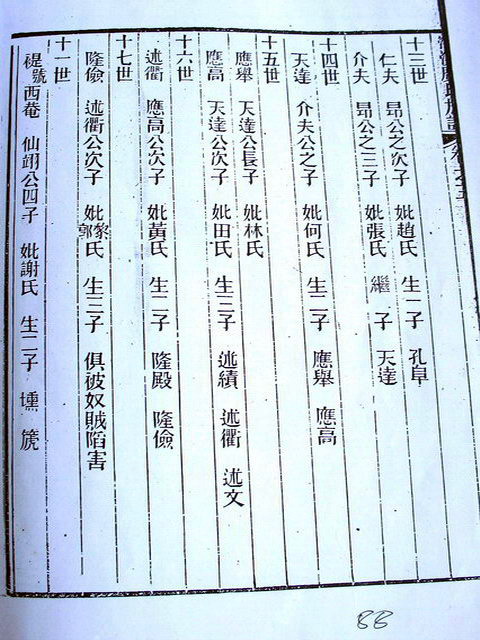 十三世
仁夫 昂公之次子 妣趙氏 生一子 孔阜
介夫 昂公之三子 妣張氏 繼子 天達
十四世
天達 介夫公之子 妣何氏 生二子 應舉 應高
十五世
應舉 天達公長子 妣林氏
應高 天達公次子 妣田氏 生三子 述績 述衢 述文
十六世
述衢 應高公次子 妣黃氏 生二子 隆殿 隆儉
十七世
隆儉 述衢公次子 妣黎氏郭 生三子 俱被奴賊陷害
十一世
禔號西菴 仙翊公四子 妣謝氏 生二子 壎 篪
88